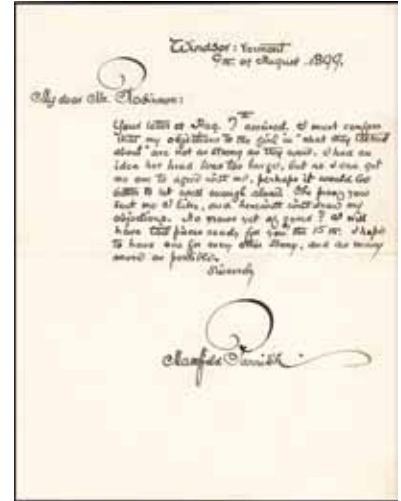 Windsor : Vermont
9th. of August 1899.
My dear Mr. Robinson :
Your letter of Aug. 7th received. I must confess
that my objections to the girl in "what they talked
about" are not as strong as they were. I had an
idea her head was too large, but as I can get
no one to agree with me, perhaps it would be
better to let well enough alone. The proof you
sent me I like, and herewith withdraw my
objections. No news yet of yours? I will
have two pieces ready for you the 15th. I hope
to have one for every other story, and as many
more as possible.
Sincerely
Maxfield Parrish